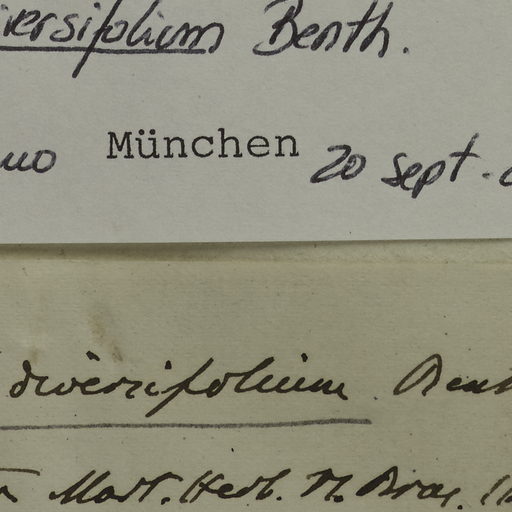 iversifolium Benth.
München 20 sept.
diversifolium. Bent
Mart. Herb. Fl. Bras.